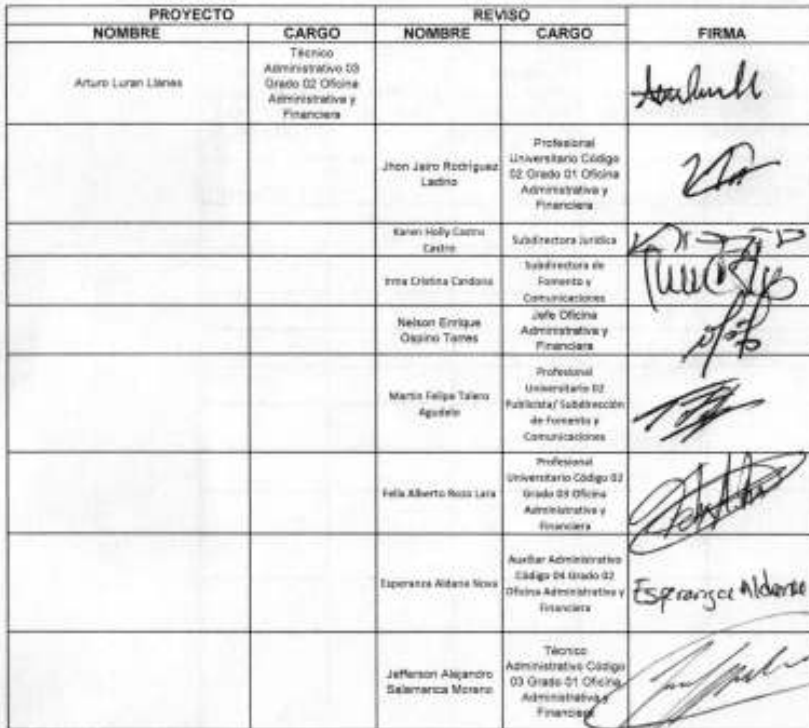 PROYECTO
REVISO
NOMBRE
CARGO
NOMBRE
CARGO
FIRMA
Arturo Luran Llanes
Técnico
Administrativo 03
Grado 02 Oficina
Administrativa y
Financiera
Jhon Jairo Rodriguez
Ladino
Profesional
Universitario Código
02 Grado 01 Oficina
Administrativa y
Financiera
Karen Holly Castro
Castro
Subdirectora Juridica
Irma Cristina Cardona
Subdirectora de
Fomento y
Comunicaciones
Nelson Enrique
Ospino Torres
Jefe Oficina
Administrativa y
Financiera
Martin Felipe Talero
Agudelo
Profesional
Universitario 02
Publicista/ Subdirección
de Fomento y
Comunicaciones
Felix Alberto Rozo Lara
Profesional
Universitario Código 02
Grado 03 Oficina
Administrativa y
Financiera
Esperanza Aldana Nova
Auxiliar Administrativo
Código 04 Grado 02
Oficina Administrativa y
Financiera
Esperanza Aldana
Jefferson Alejandro
Salamanca Moreno
Técnico
Administrativo Código
03 Grado 01 Oficina
Administrativa y
Financiera